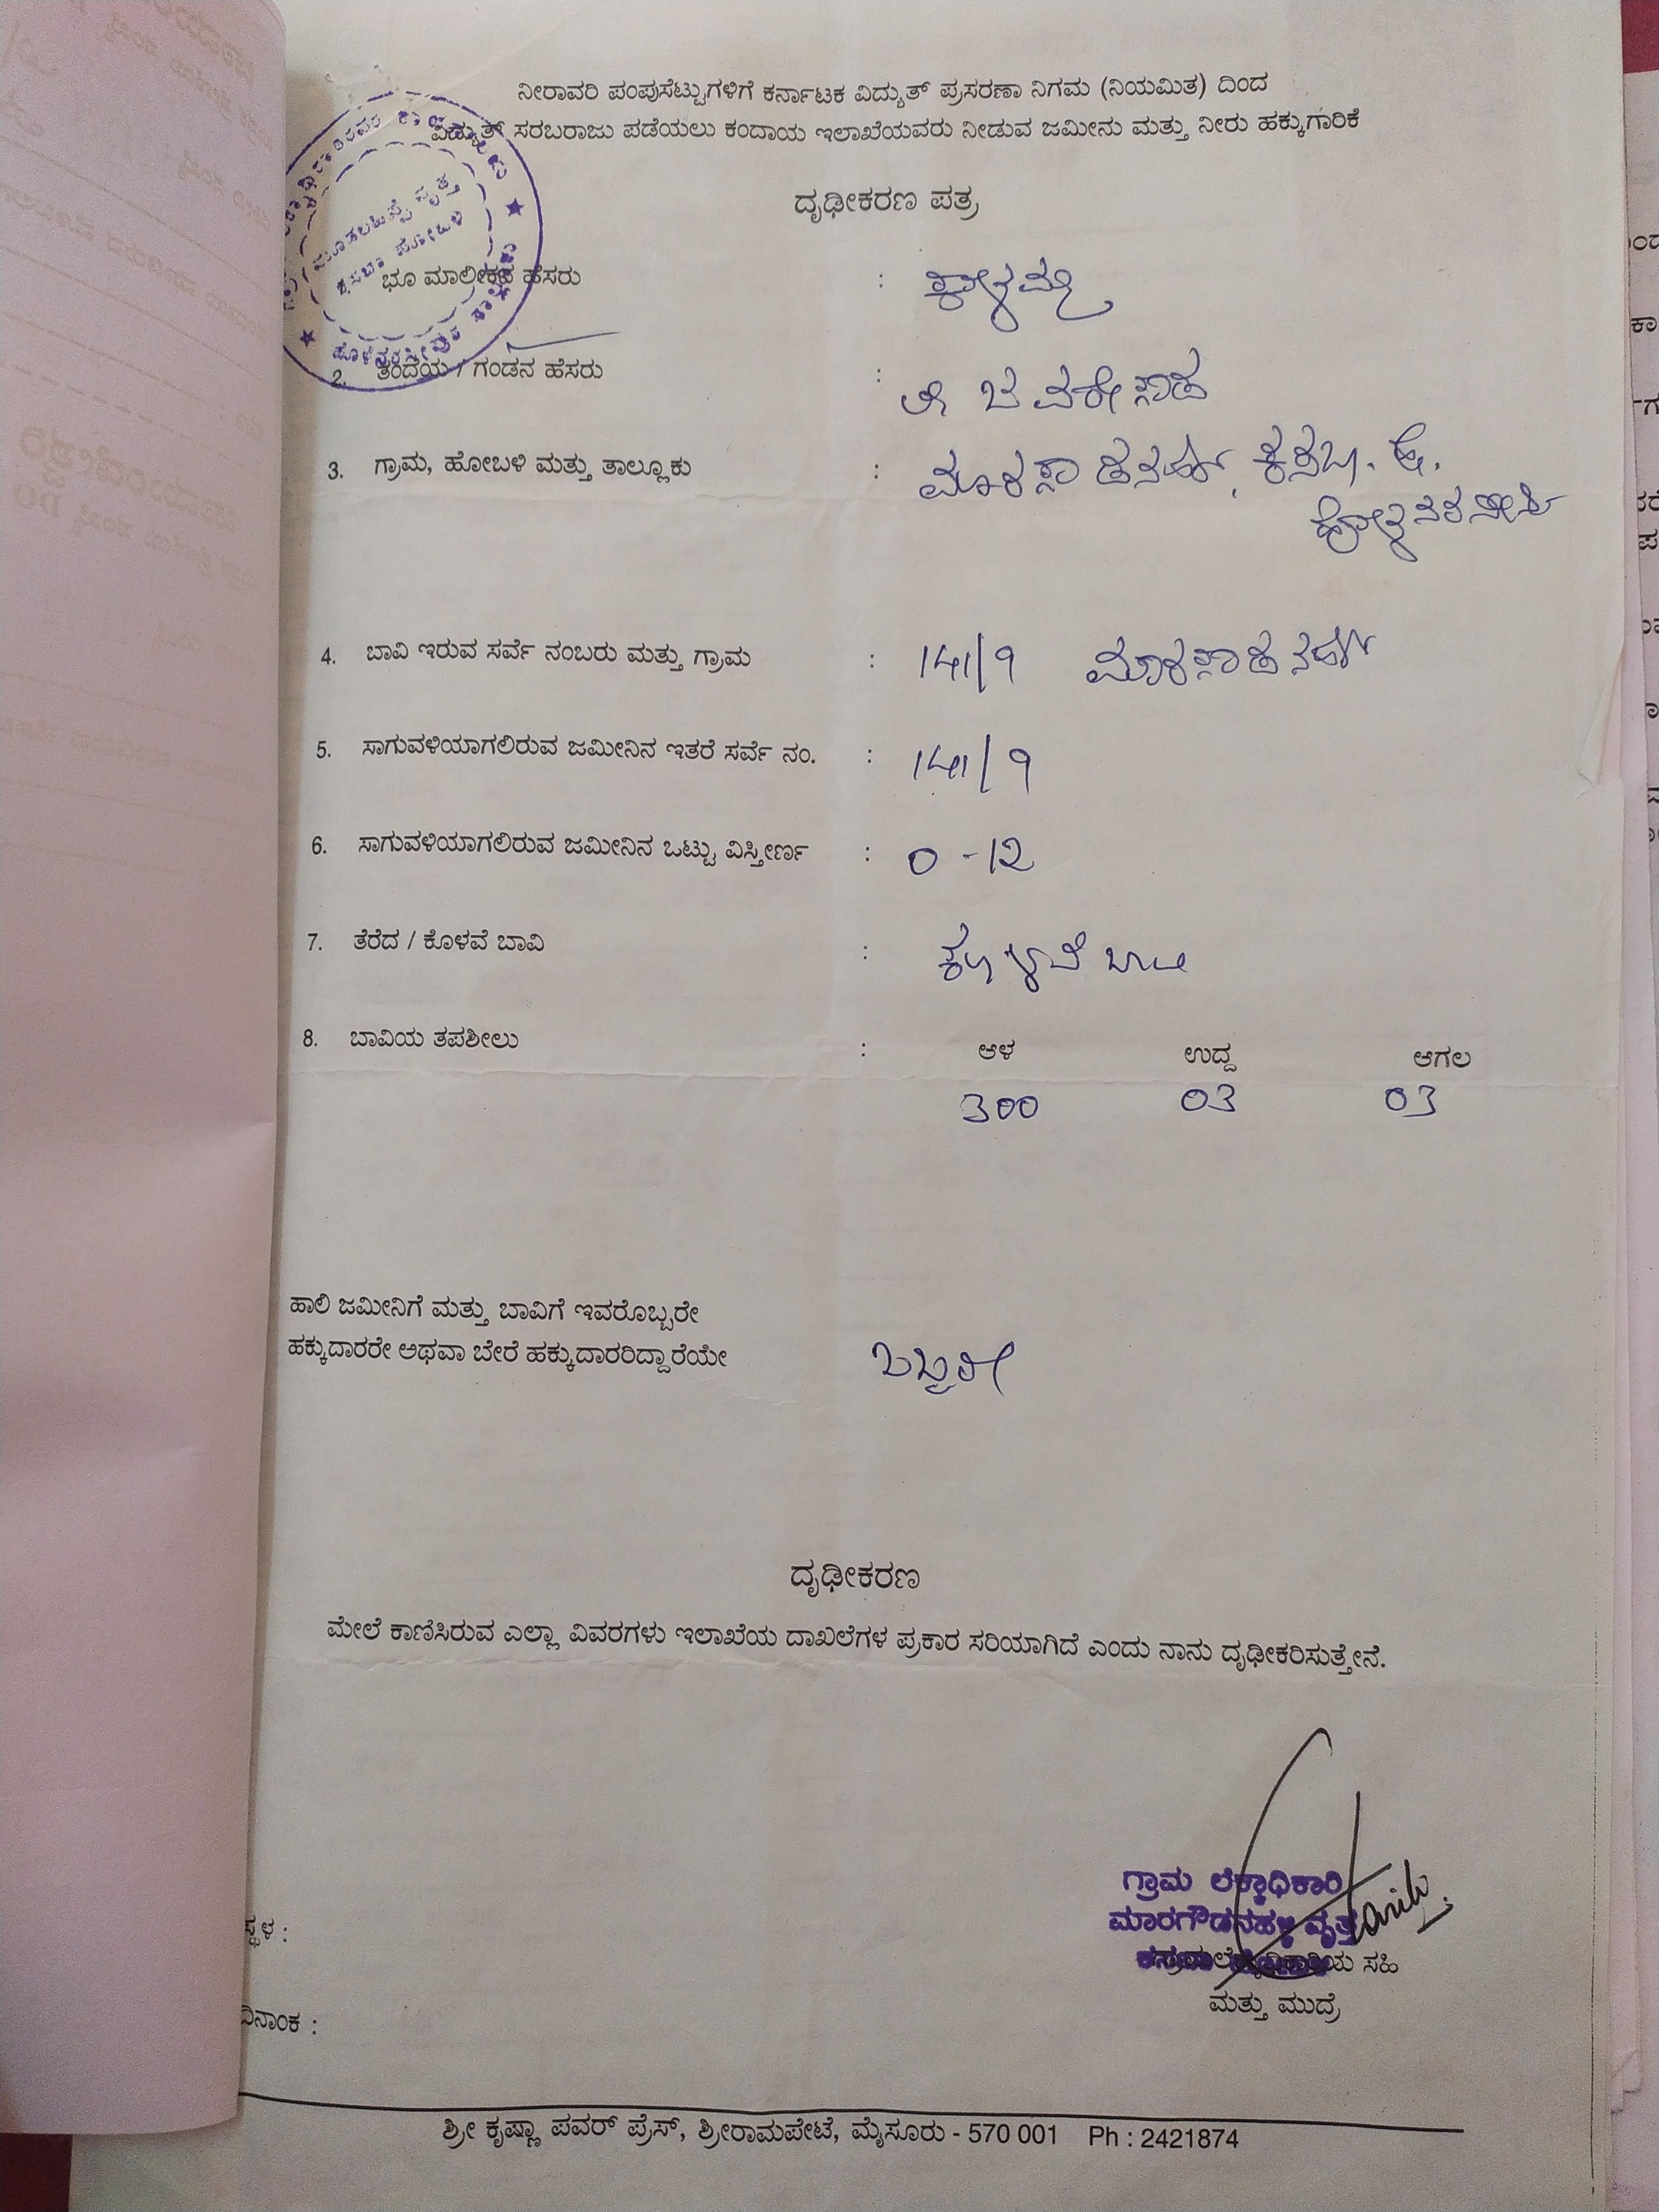 ನೀರಾವರಿ ಪಂಪುಸೆಟ್ಟುಗಳಿಗೆ ಕರ್ನಾಟಕ ವಿದ್ಯುತ್ ಪ್ರಸರಣಾ ನಿಗಮ (ನಿಯಮಿತ) ದಿಂದ
ವಿದ್ಯುತ್ ಸರಬರಾಜು ಪಡೆಯಲು ಕಂದಾಯ ಇಲಾಖೆಯವರು ನೀಡುವ ಜಮೀನು ಮತ್ತು ನೀರು ಹಕ್ಕುಗಾರಿಕೆ
ದೃಢೀಕರಣ ಪತ್ರ
ಭೂ ಮಾಲೀಕನ ಹೆಸರು : ಕಾಳಮ್ಮ
2. ತಂದೆಯ / ಗಂಡನ ಹೆಸರು :
3. ಗ್ರಾಮ, ಹೋಬಳಿ ಮತ್ತು ತಾಲ್ಲೂಕು : ಮಾರಗೌಡನಹಳ್ಳಿ, ಕಸಬಾ. ಹೋ.
ಹೊಳೆನರಸೀಪುರ
4. ಬಾವಿ ಇರುವ ಸರ್ವೆ ನಂಬರು ಮತ್ತು ಗ್ರಾಮ : 141/9 ಮಾರಗೌಡನಹಳ್ಳಿ
5. ಸಾಗುವಳಿಯಾಗಲಿರುವ ಜಮೀನಿನ ಇತರೆ ಸರ್ವೆ ನಂ. : 141/9
6. ಸಾಗುವಳಿಯಾಗಲಿರುವ ಜಮೀನಿನ ಒಟ್ಟು ವಿಸ್ತೀರ್ಣ : 0-12
7. ತೆರೆದ / ಕೊಳವೆ ಬಾವಿ : ಕೊಳವೆ ಬಾವಿ
8. ಬಾವಿಯ ತಪಶೀಲು : ಆಳ ಉದ್ದ ಆಗಲ
300 03 03
ಹಾಲಿ ಜಮೀನಿಗೆ ಮತ್ತು ಬಾವಿಗೆ ಇವರೊಬ್ಬರೇ
ಹಕ್ಕುದಾರರೇ ಅಥವಾ ಬೇರೆ ಹಕ್ಕುದಾರರಿದ್ದಾರೆಯೇ ಒಬ್ಬರೇ
ದೃಢೀಕರಣ
ಮೇಲೆ ಕಾಣಿಸಿರುವ ಎಲ್ಲಾ ವಿವರಗಳು ಇಲಾಖೆಯ ದಾಖಲೆಗಳ ಪ್ರಕಾರ ಸರಿಯಾಗಿದೆ ಎಂದು ನಾನು ದೃಢೀಕರಿಸುತ್ತೇನೆ.
ಗ್ರಾಮ ಲೆಕ್ಕಾಧಿಕಾರಿ
ಮಾರಗೌಡನಹಳ್ಳಿ ವೃತ್ತ
ಸ್ಥಳ :
ಸಹಿ
ಮತ್ತು ಮುದ್ರೆ
ದಿನಾಂಕ :
ಶ್ರೀ ಕೃಷ್ಣಾ ಪವರ್ ಪ್ರೆಸ್, ಶ್ರೀರಾಮಪೇಟೆ, ಮೈಸೂರು - 570 001 Ph : 2421874